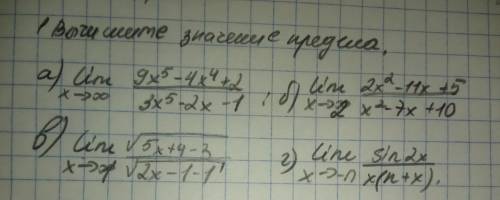 1 Вычислите значение предела.
а) lim x→∞ (9x⁵-4x⁴+2)/(3x⁵-2x-1) ; б) lim x→2 (2x²-11x+5)/(x²-7x+10)
в) lim x→1 √(5x+4-3)/√(2x-1-1) г) lim x→-π sin2x/(x(π+x)).